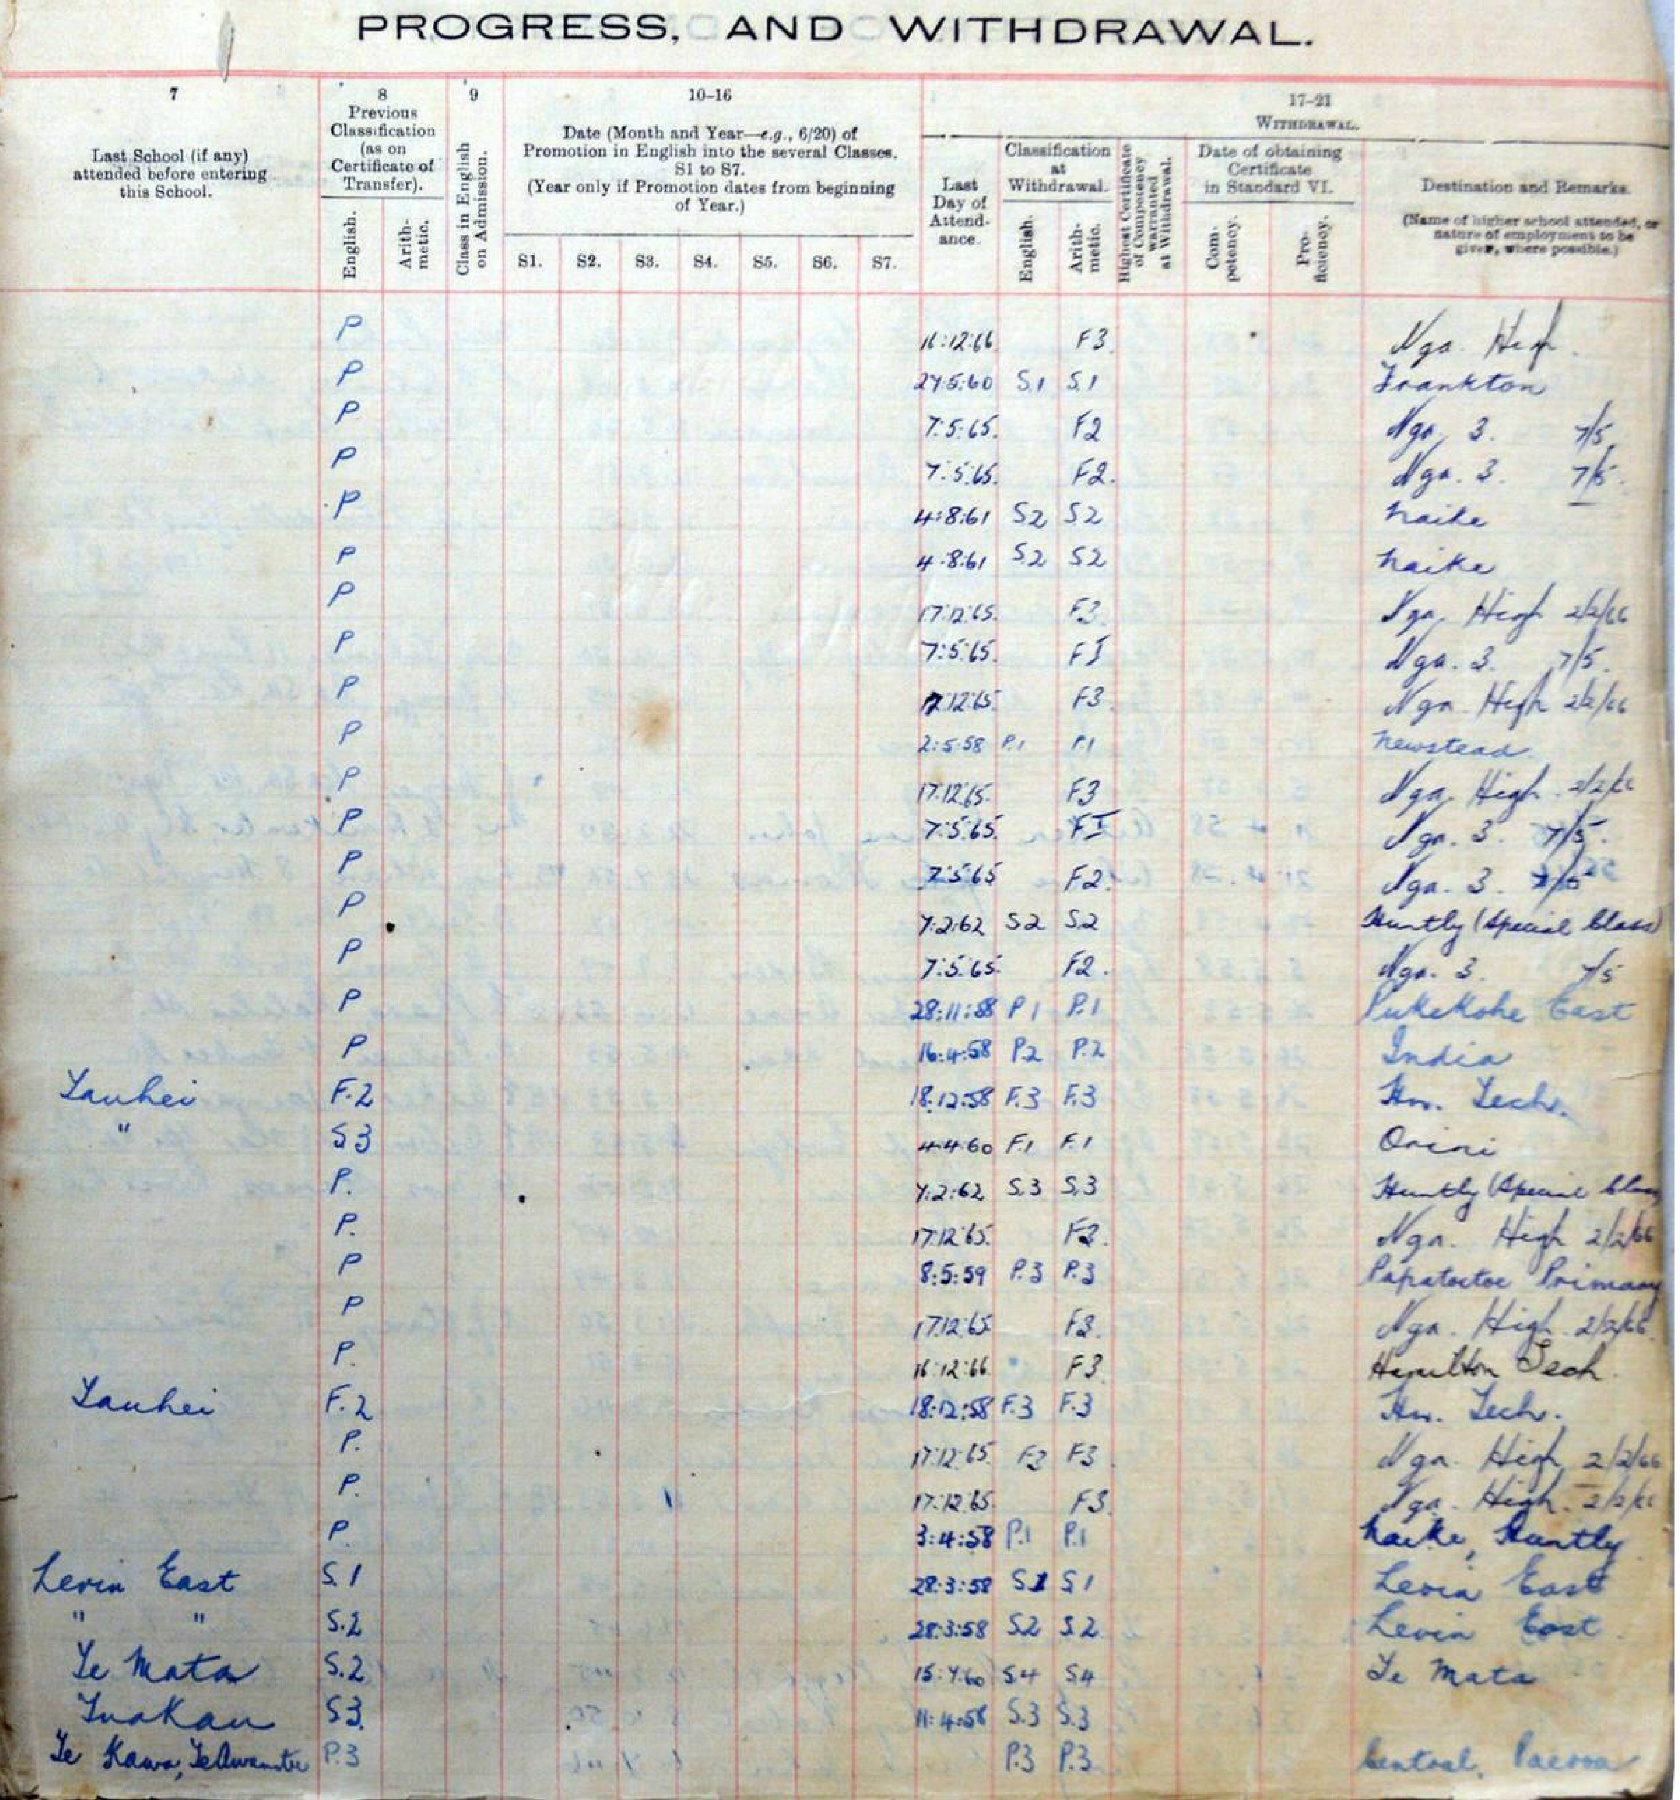 PROGRESS, AND WITHDRAWAL.
7
8
9
10–16
17–21
Last School (if any) attended before entering this School.
Previous Classification (as on Certificate of Transfer).
English.
Arith-metic.
Class in English on Admission.
Date (Month and Year—e.g., 6/20) of Promotion in English into the several Classes, S1 to S7.
(Year only if Promotion dates from beginning of Year.)
S1. S2. S3. S4. S5. S6. S7.
WITHDRAWAL.
Last Day of Attend-ance.
Classification at Withdrawal.
English.
Arith-metic.
Highest Certificate of Competency warranted at Withdrawal.
Date of obtaining Certificate in Standard VI.
Com-petency.
Pro-ficiency.
Destination and Remarks.
(Name of higher school attended, or nature of employment to be given, where possible.)
P 16:12:66 F3. Nga. High.
P 27:5:60 S.1 S.1 Frankton
P 7:5:65. F2 Nga. 3. 7/5.
P 7:5:65. F2. Nga. 3. 7/5.
P 4:8:61 S2 S2 Naike
P 4:8:61 S2 S2 Naike
P 17:12:65. F3. Nga. High 2/2/66
P 7:5:65. FI Nga. 3. 7/5.
P 17:12:65. F3. Nga. High 2/2/66
P 2:5:58 P.1 P.1 Newstead.
P 17:12:65. F3 Nga. High. 2/2/66
P 7:5:65. FI Nga. 3. 7/5.
P 7:5:65 F2. Nga. 3. 7/5
P 7:2:62 S2 S2 Huntly (Special Class)
P 7:5:65. F2. Nga. 3. 7/5
P 28:11:58 P1 P.1 Pukekohe East
P 16:4:58 P.2 P.2 India
Tauhei F.2 18:12:58 F.3 F.3 Hn. Tech.
" S3 4:4:60 F.1 F.1 Orini
P. 7:2:62 S.3 S.3 Huntly (Special Class
P. 17:12:65. F3. Nga. High 2/2/66
P 8:5:59 P.3 P.3 Papatoetoe Primary
P 17:12:65 F3. Nga. High. 2/2/66.
P. 16:12:66 F3. Hamilton Tech.
Tauhei F.2 18:12:58 F.3 F.3 Hn. Tech.
P. 17:12:65 F3 F3. Nga. High 2/2/66
P. 17:12:65. F3. Nga. High. 2/2/66
P. 3:4:58 P.1 P.1 Naike, Huntly
Levin East S.1 28:3:58 S1 S1 Levin East
" " S.2 28:3:58 S2 S.2 Levin East.
Te Mata S.2 15:7:60 S4 S4 Te Mata
Tuakau S3. 11:4:58 S.3 S.3
Te Kawa, Te Awamutu P.3 P.3 P.3 Central, Paeroa